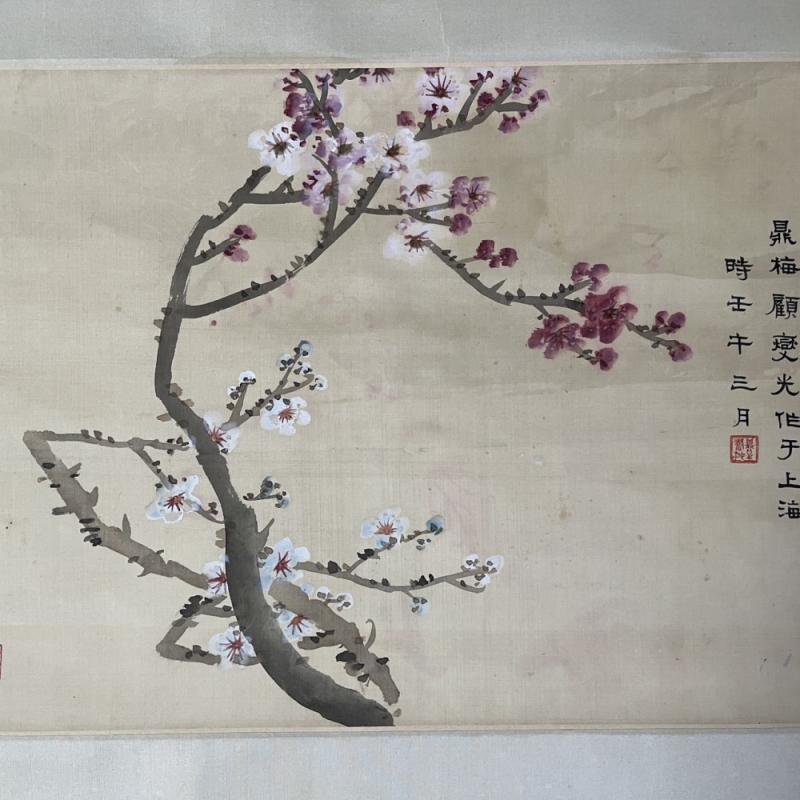 鼎梅顧燮光作于上海
時壬午三月